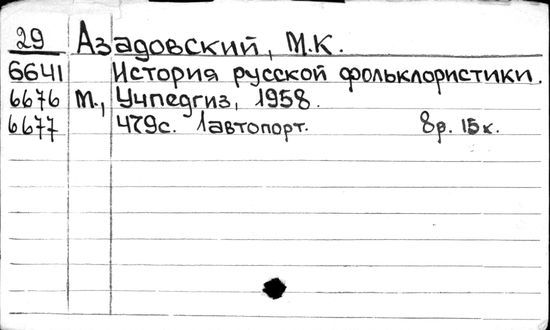 29 Азадовский, М.К.
6641 История русской фольклористики.
6676 М., Учпедгиз, 1958.
6677 479с. 1автопорт. 8р. 15к.